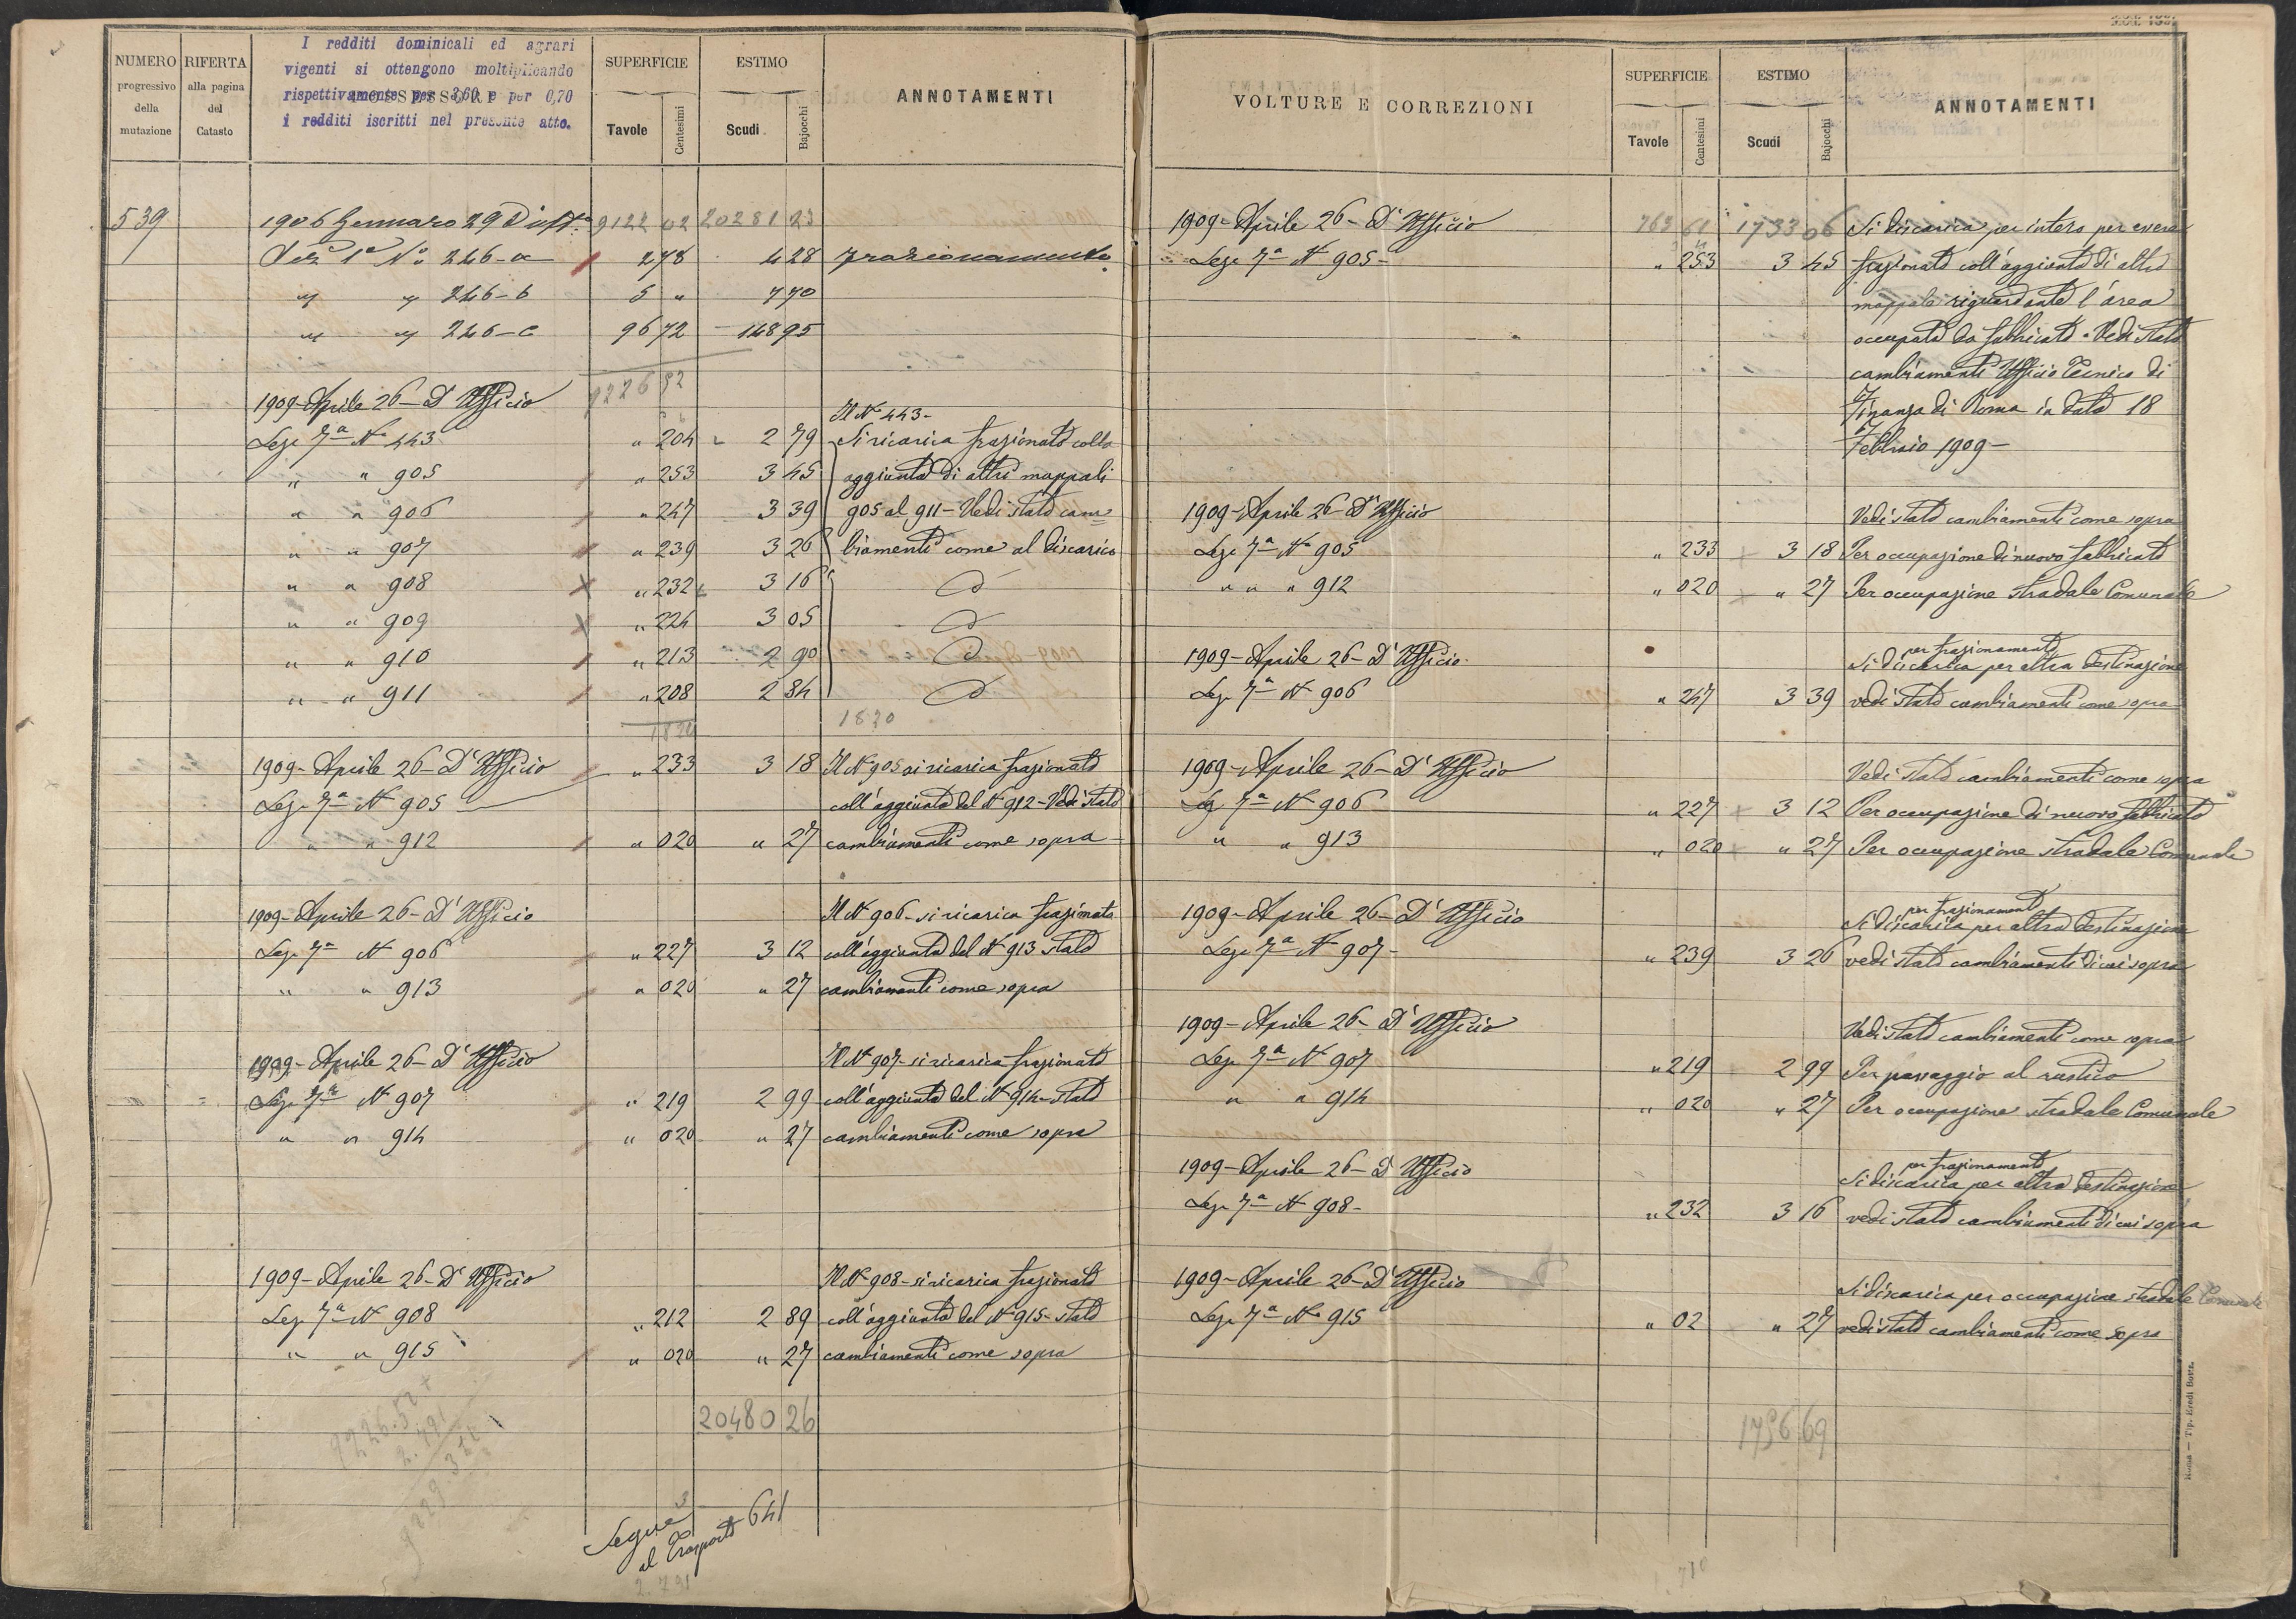 NUMERO progressivo della mutazione
RIFERTA alla pagina del Catasto
POSSESSORI
I redditi dominicali ed agrari
vigenti si ottengono moltiplicando
rispettivamente per 3,60 e per 0,70
i redditi iscritti nel presente atto.
SUPERFICIE Tavole Centesimi
ESTIMO Scudi Bajocchi
ANNOTAMENTI
539 1906 Gennaro 29 9122 02 20281 23
Sez 1a No 246-a 278 4 28 frazionamento
" " 246-b 5 " 7 70
" " 246-c 96 72 148 95
9226 52
1909 - Aprile 26 - D'Ufficio
Il No 443 -
Lege 7a No 443 " 204 2 79 Si ricarica frazionato colla
" " 905 " 253 3 45 aggiunta di altri mappali
" " 906 " 247 3 39 905 al 911 - Vedi Stato cam=
" " 907 " 239 3 26 biamenti come al discarico
" " 908 " 232 3 16 d
" " 909 " 224 3 05 d
" " 910 " 213 2 90 d
" " 911 " 208 2 84 d
1820 1820
1909 - Aprile 26 - D'Ufficio " 233 3 18 Il No 905 si ricarica frazionato
Lege 7a No 905 coll'aggiunta del No 912 - Vedi Stato
" " 912 " 020 " 27 cambiamenti come sopra
1909 - Aprile 26 - D'Ufficio Il No 906 - si ricarica frazionato
Lege 7a No 906 " 227 3 12 coll'aggiunta del No 913 Stato
" " 913 " 020 " 27 cambiamenti come sopra
1909 - Aprile 26 - D'Ufficio Il No 907 - si ricarica frazionato
Lege 7a No 907 " 219 2 99 coll'aggiunta del No 914 - Stato
" " 914 " 020 " 27 cambiamenti come sopra
1909 - Aprile 26 - D'Ufficio Il No 908 - si ricarica frazionato
Lege 7a No 908 " 212 2 89 coll'aggiunta del No 915 - Stato
" " 915 " 020 " 27 cambiamenti come sopra
20480 26
9226.52 +
2.791
9229.311
Segue al Trasporto 641
2.791
VOLTURE E CORREZIONI
SUPERFICIE Tavole Centesimi
ESTIMO Scudi Bajocchi
ANNOTAMENTI
1909 - Aprile 26 - D'Ufficio 763 61 1733 06 Si discarica per intero per essere
Lege 7a No 905 - " 253 3 45 frazionato coll'aggiunta di altro
mappale riguardante l'area
occupata da fabbricato - Vedi Stato
cambiamenti Ufficio Tecnico di
Finanza di Roma in data 18
Febbraio 1909 -
1909 - Aprile 26 - D'Ufficio Vedi stato cambiamenti come sopra
Lege 7a No 905 " 233 3 18 Per occupazione di nuovo fabbricato
" " " 912 " 020 " 27 Per occupazione stradale Comunale
per frazionamento
1909 - Aprile 26 - D'Ufficio Si discarica per altra destinazione
Lege 7a No 906 " 247 3 39 vedi Stato cambiamenti come sopra
1909 - Aprile 26 - D'Ufficio Vedi Stato cambiamenti come sopra
Lege 7a No 906 " 227 3 12 Per occupazione di nuovo fabbricato
" " 913 " 020 " 27 Per occupazione stradale Comunale
per frazionamento
1909 - Aprile 26 - D'Ufficio Si discarica per altra destinazione
Lege 7a No 907 - " 239 3 26 vedi stato cambiamenti di cui sopra
1909 - Aprile 26 - D'Ufficio Vedi stato cambiamenti come sopra
Lege 7a No 907 " 219 2 99 Per passaggio al rustico
" " 914 " 020 " 27 Per occupazione stradale Comunale
per frazionamento
1909 - Aprile 26 - D'Ufficio Si discarica per altra destinazione
Lege 7a No 908 - " 232 3 16 vedi stato cambiamenti di cui sopra
1909 - Aprile 26 - D'Ufficio Si discarica per occupazione stradale Comunale
Lege 7a No 915 " 02 " 27 vedi Stato cambiamenti come sopra
1756 69
Roma — Tip. Eredi Botta.